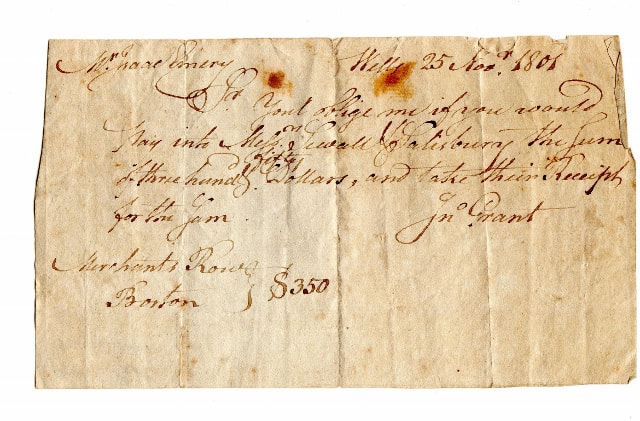 Mr Isaac Emery Wells 25 Novr. 1801
Sr. Youl oblige me if you would
Pay into Messrs Sewall & Salisbury the Sum
of three hundd fifty Dollars, and take their Receipt
for the Sam.
Jno Grant
Merchants Row
Boston } $350